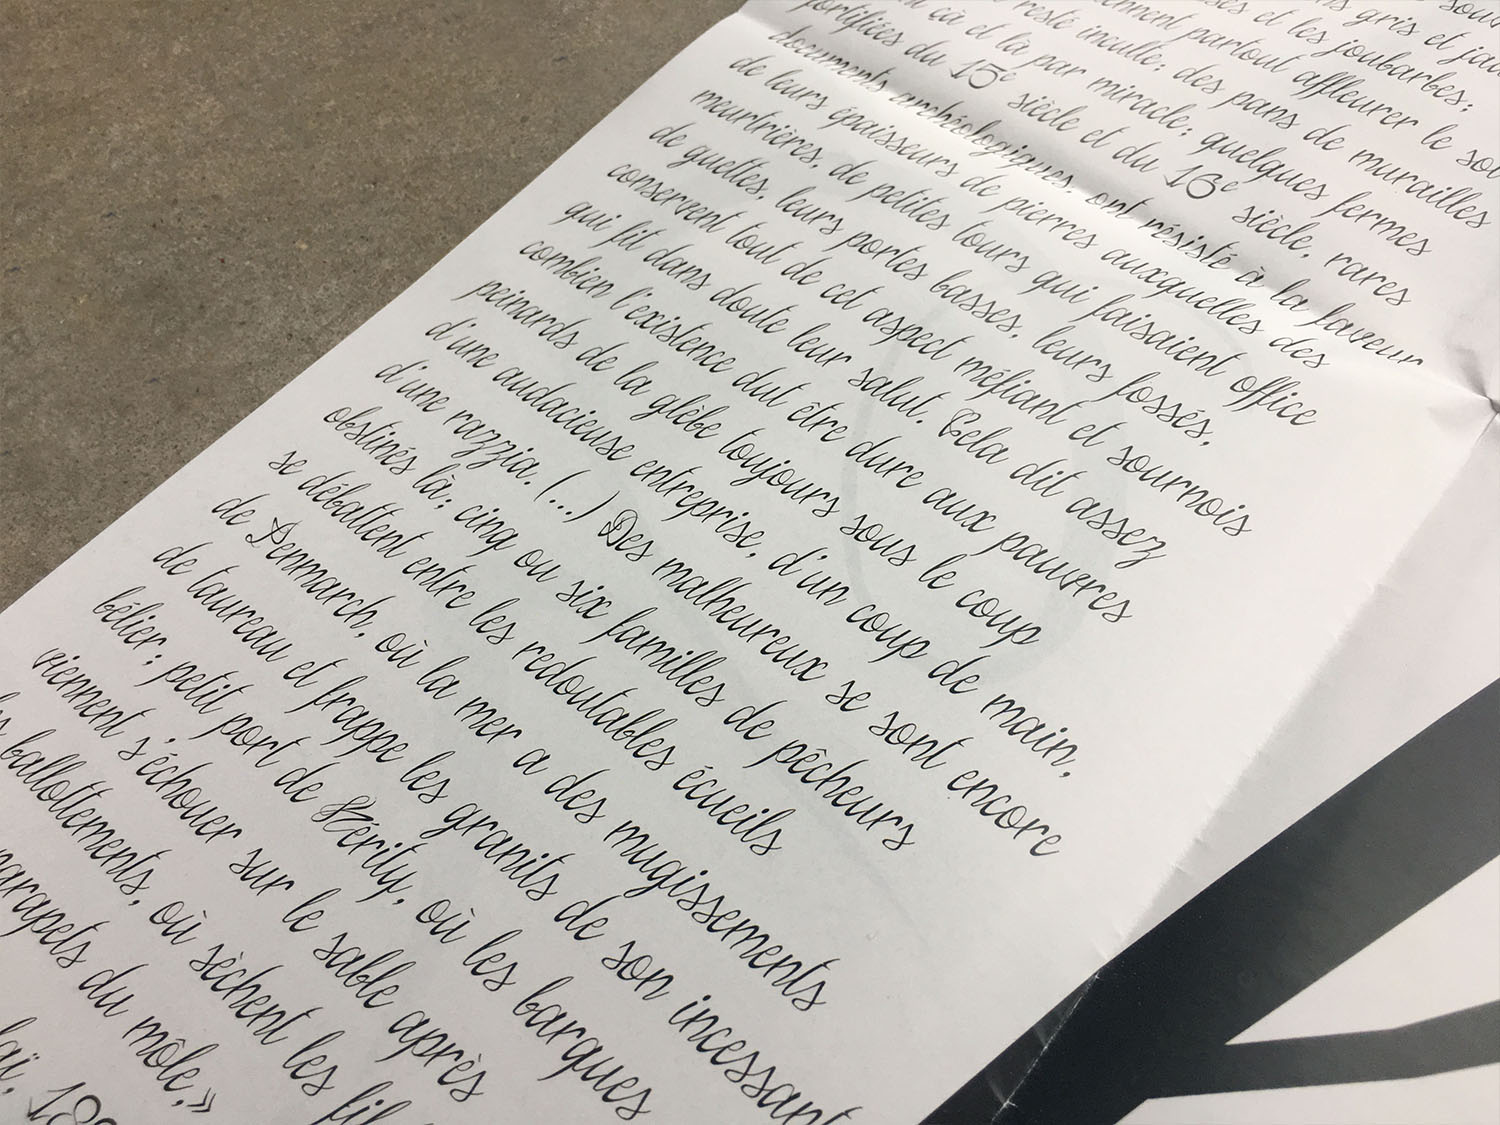 souv
gris et jau
et les joubarbes;
ennent partout affleurer le sol
resté inculte; des pans de murailles
çà et là par miracle; quelques fermes
fortifiées du 15e siècle et du 16e siècle, rares
documents archéologiques, ont résisté à la faveur
de leurs épaisseurs de pierres auxquelles des
meurtrières, de petites tours qui faisaient office
de guettes, leurs portes basses, leurs fossés,
conservent tout de cet aspect méfiant et sournois
qui fit dans doute leur salut. Cela dit assez
combien l'existence dut être dure aux pauvres
peinards de la glèbe toujours sous le coup
d'une audacieuse entreprise, d'un coup de main,
d'une razzia. (...) Des malheureux se sont encore
obstinés là; cinq ou six familles de pêcheurs
se débattent entre les redoutables écueils
de Penmarch, où la mer a des mugissements
de taureau et frappe les granits de son incessant
bélier; petit port de Kérity, où les barques
viennent s'échouer sur le sable après
ballottements, où sèchent les fil
parapets du môle.»
aï, 189